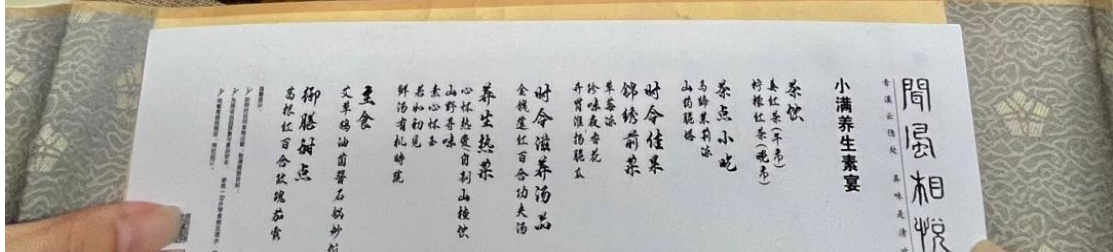 闻风相悦
青溪云隐处 真味是清
小满养生素宴
茶饮
姜红茶(午市)
柠檬红茶(晚市)
茶点小吃
马蹄茉莉冻
山药脆塔
时令佳果
锦绣前菜
草莓冻
珍味夜香花
开胃淮扬脆瓜
时令滋养汤品
金钱莲红百合功夫汤
养生热菜
心怀热爱(自制山楂饮
山野寻味
素心怀玉
若如初见
鲜汤有机时蔬
主食
艾草鸡油菌酱石锅炒
御膳甜点
葛根红百合玫瑰茄露
温馨提示: